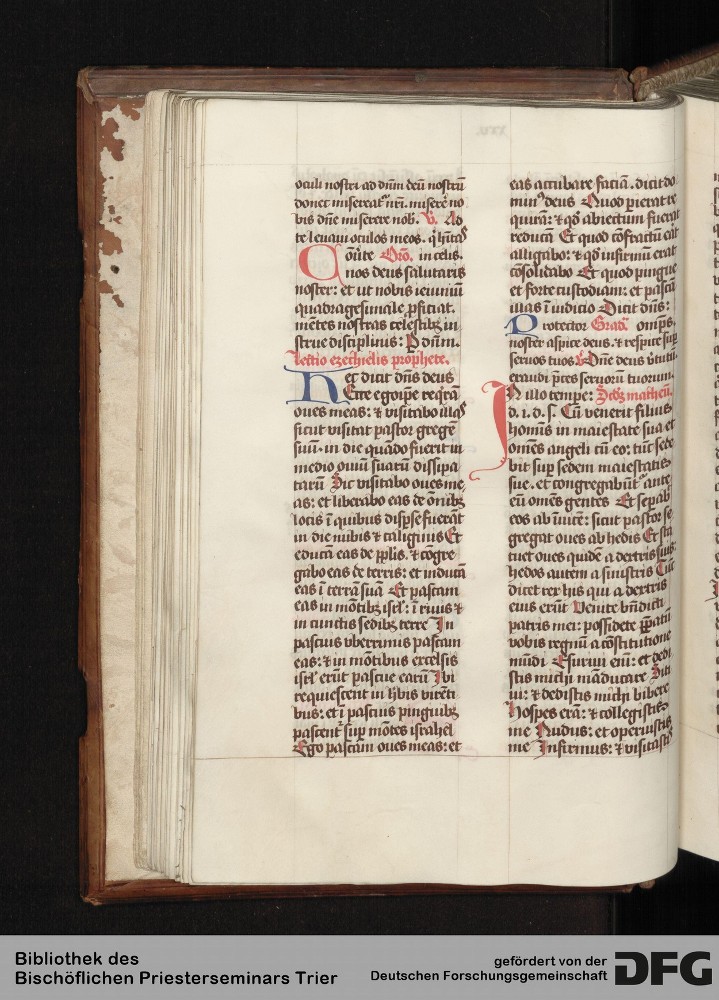 oculi nostri ad dnm deu nostru
donec misereat nri. misere no
bis dne miserere nob. V. Ad
te levavi oculos meos. q hitas
Conute Oro. in celis.
nos deus salutaris
noster: et ut nobis ieiuniu
quadragesimale pficiat.
metes nostras celestibz in
strue disciplinis: P dnm.
Lectio ezechielis prophete.
Hec dicit dns deus
Ecce ego ipe reqram
oues meas: & uisitabo illas
sicut uisitat pastor grege
suu. in die quado fuerit in
medio ouiu suaru dissipa
taru Sic uisitabo oues me
as: et liberabo eas de omibz
locis i quibus dispse fuerat
in die nubis & caliginis Et
educa eas de pplis. & cogre
gabo eas de terris: et inducam
eas i terra sua Et pascam
eas in motibz isrl: i riuis &
in cunctis sedibz terre In
pascuis uberrimis pascam
eas: & in motibus excelsis
isrl erut pascue earu Ibi
requiescent in hbis uireti
bus: et i pascuis pinguibz
pascent sup motes israhel
Ego pascam oues meas: et
eas accubare facia. dicit do
minus deus Quod pierat re
quira: & qd abiectum fuerat
reducam Et quod cofractu erat
alligabo: & qd infirmu erat
cosolidabo Et quod pingue
et forte custodiam: et pascam
illas i iudicio Dicit dns:
Protector Grad omps.
noster aspice deus. & respice sup
seruos tuos V Dne deus uirtutu
exaudi pces seruoru tuorum.
In illo tempe: Scdz matheu.
d. i. d. s. Cu uenerit filius
hominis in maiestate sua et
omes angeli cu eo: tuc sede
bit sup sedem maiestatis
sue. et congregabut ante
eu omes gentes Et sepab
eos ab inuice: sicut pastor se
gregat oues ab hedis Et sta
tuet oues quide a dextris suis
hedos autem a sinistris Tuc
dicet rex his qui a dextris
eius erut Uenite bndicti
patris mei: possidete paratu
uobis regnu a costitutione
mudi Esuriui eni: et dedi
stis michi maducare Siti
ui: & dedistis michi bibere
Hospes era: & collegistis
me Nudus: et operuistis
me Infirmus: & uisitastis
Bibliothek des
Bischöflichen Priesterseminars Trier
gefördert von der
Deutschen Forschungsgemeinschaft
DFG